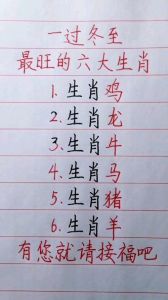 一过冬至
最旺的六大生肖
1.生肖鸡
2.生肖龙
3.生肖牛
4.生肖马
5.生肖猪
6.生肖羊
有您就请接福吧